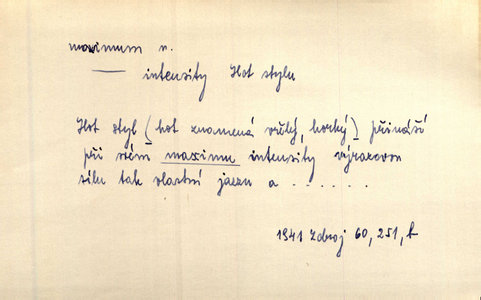 maximum n.
—— intensity Hot stylu
Hot styl (hot znamená vřelý, horký) přináší
při svém maximu intensity výrazovou
sílu tak vlastní jazzu a . . . . . .
1941 Zdroj 60, 251, k